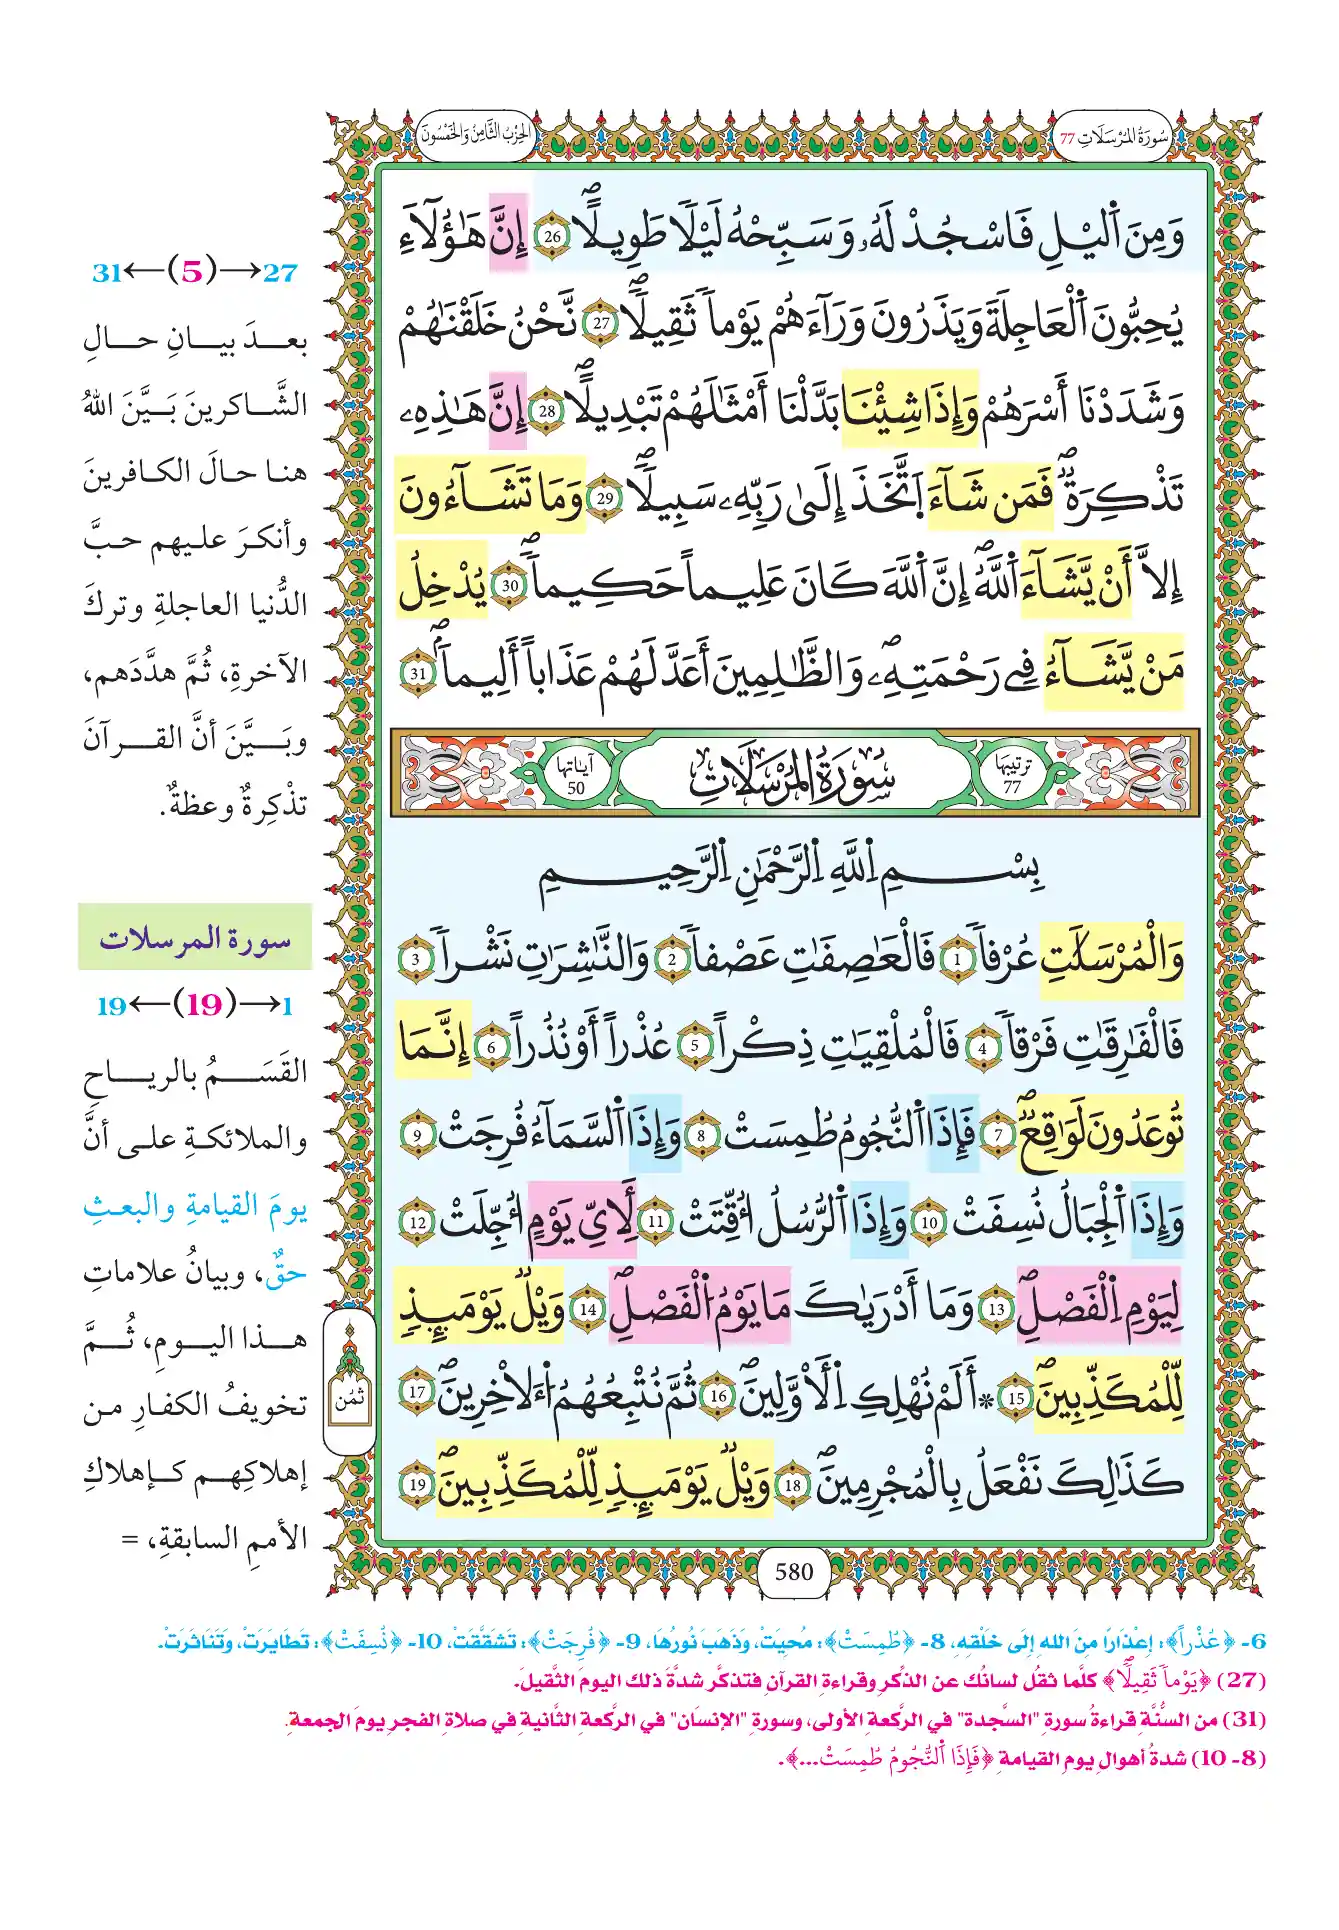 سُورَةُ المُرْسَلَاتِ 77
الحِزْبُ الثَّامِنُ وَالخَمْسُونَ
وَمِنَ اَ۬ليْلِ فَاسْجُدْ لَهُۥ وَسَبِّحْهُ لَيْلًا طَوِيلًاۖ 26 إِنَّ هَٰٓؤُلَآءِ
يُحِبُّونَ اَ۬لْعَاجِلَةَ وَيَذَرُونَ وَرَآءَهُمْ يَوْماٗ ثَقِيلًاۖ 27 نَّحْنُ خَلَقْنَٰهُمْ
وَشَدَدْنَا أَسْرَهُمْ وَإِذَا شِئْنَا بَدَّلْنَا أَمْثَٰلَهُمْ تَبْدِيلًاۖ 28 إِنَّ هَٰذِهِۦ
تَذْكِرَةٌۖ فَمَن شَآءَ اَ۪تَّخَذَ إِلَىٰ رَبِّهِۦ سَبِيلًاۖ 29 وَمَا تَشَآءُونَ
إِلَّا أَنْ يَّشَآءَ اَ۬للَّهُۖ إِنَّ اَ۬للَّهَ كَانَ عَلِيماً حَكِيماٗۖ 30 يُدْخِلُ
مَنْ يَّشَآءُ فِے رَحْمَتِهِۦۖ وَالظَّٰلِمِينَ أَعَدَّ لَهُمْ عَذَاباً أَلِيماًۖ 31
ترتيبها 77
سُورَةُ المُرْسَلَاتِ
آياتها 50
بِسْمِ اِ۬للَّهِ اِ۬لرَّحْمَٰنِ اِ۬لرَّحِيمِ
وَالْمُرْسَلَٰتِ عُرْفاٗ 1 فَالْعَٰصِفَٰتِ عَصْفاٗ 2 وَالنَّٰشِرَٰتِ نَشْراٗ 3
فَالْفَٰرِقَٰتِ فَرْقاٗ 4 فَالْمُلْقِيَٰتِ ذِكْراً 5 عُذْراً أَوْ نُذُراً 6 إِنَّمَا
تُوعَدُونَ لَوَٰقِعٌۖ 7 فَإِذَا اَ۬لنُّجُومُ طُمِسَتْ 8 وَإِذَا اَ۬لسَّمَآءُ فُرِجَتْ 9
وَإِذَا اَ۬لْجِبَالُ نُسِفَتْ 10 وَإِذَا اَ۬لرُّسُلُ أُقِّتَتْ 11 لِأَيِّ يَوْمٍ أُجِّلَتْ 12
لِيَوْمِ اِ۬لْفَصْلِۖ 13 وَمَا أَدْرَىٰكَ مَا يَوْمُ اُ۬لْفَصْلِۖ 14 وَيْلٌ يَوْمَئِذٍ
لِّلْمُكَذِّبِينَۖ 15 * أَلَمْ نُهْلِكِ اِ۬لْأَوَّلِينَۖ 16 ثُمَّ نُتْبِعُهُمُ اُ۬لْأَخِرِينَۖ 17
كَذَٰلِكَ نَفْعَلُ بِالْمُجْرِمِينَۖ 18 وَيْلٌ يَوْمَئِذٍ لِّلْمُكَذِّبِينَۖ 19
ثمُن
580
27→(5)←31
بعدَ بيانِ حالِ
الشَّاكرينَ بَيَّنَ اللهُ
هنا حالَ الكافرينَ
وأنكرَ عليهم حبَّ
الدُّنيا العاجلةِ وتركَ
الآخرةِ، ثُمَّ هدَّدَهم،
وبَيَّنَ أنَّ القرآنَ
تذْكِرةٌ وعظةٌ.
سورة المرسلات
1→(19)←19
القَسَمُ بالرياحِ
والملائكةِ على أنَّ
يومَ القيامةِ والبعثِ
حقٌ، وبيانُ علاماتِ
هذا اليومِ، ثُمَّ
تخويفُ الكفارِ من
إهلاكِهم كإهلاكِ
الأممِ السابقةِ، =
6- ﴿عُذْراً﴾: إِعْذَارًا مِنَ اللهِ إِلَى خَلْقِهِ، 8- ﴿طُمِسَتْ﴾: مُحِيَتْ، وَذَهَبَ نُورُهَا، 9- ﴿فُرِجَتْ﴾: تَشَقَّقَتْ، 10- ﴿نُسِفَتْ﴾: تَطَايَرَتْ، وَتَنَاثَرَتْ.
(27) ﴿يَوْماٗ ثَقِيلًاۖ﴾ كلَّما ثقُل لسانُك عن الذِّكرِ وقراءةِ القرآنِ فتذكَّر شدَّةَ ذلك اليومَ الثَّقيلَ.
(31) من السُّنَّةِ قراءةُ سورةِ "السَّجدة" في الرَّكعةِ الأولى، وسورةِ "الإنسَان" في الرَّكعةِ الثَّانيةِ في صلاةِ الفجرِ يومَ الجمعةِ.
(8- 10) شدةُ أهوالِ يومِ القيامةِ ﴿فَإِذَا اَ۬لنُّجُومُ طُمِسَتْ...﴾.